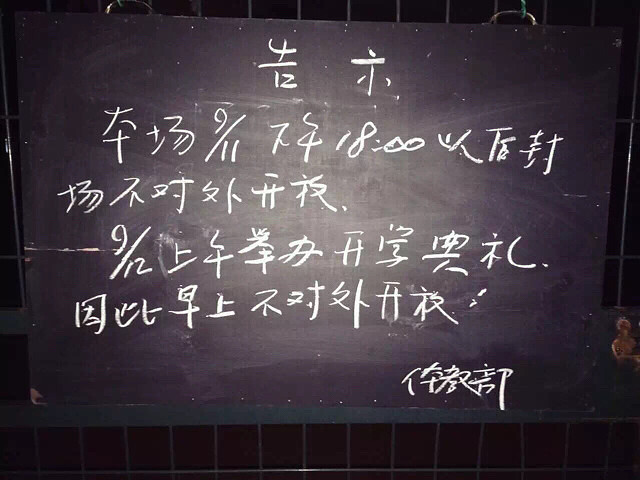 告示
本场9/11下午18:00以后封
场不对外开放、
9/12上午举办开学典礼、
因此早上不对外开放！
体教部